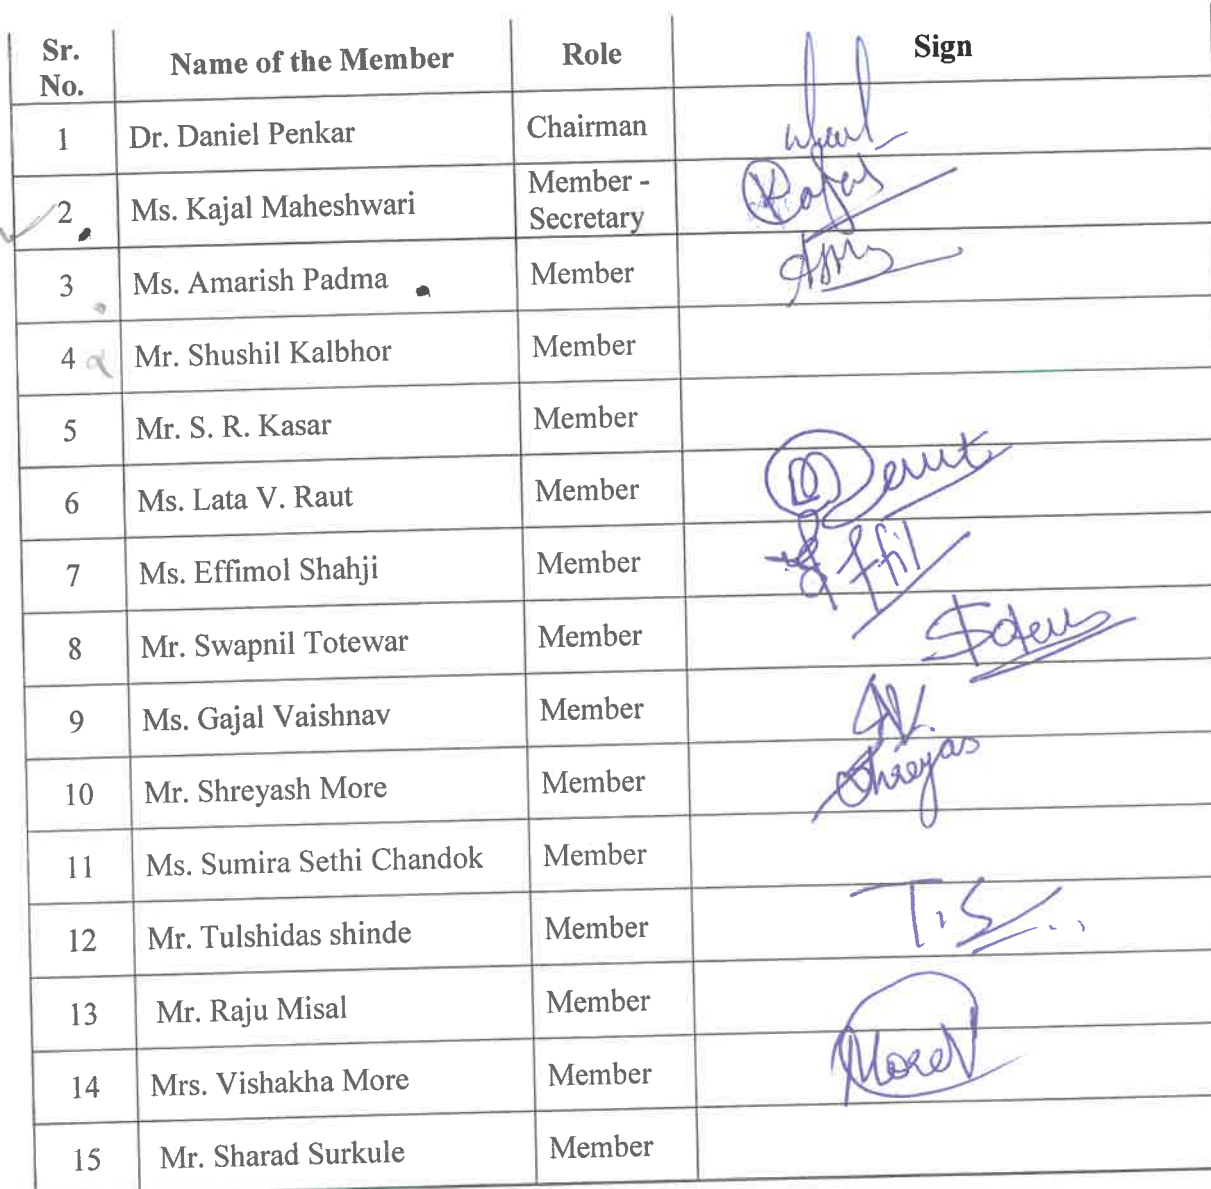 Sr. No. Name of the Member Role Sign
1 Dr. Daniel Penkar Chairman
2 Ms. Kajal Maheshwari Member - Secretary Kajal
3 Ms. Amarish Padma Member
4 Mr. Shushil Kalbhor Member
5 Mr. S. R. Kasar Member
6 Ms. Lata V. Raut Member
7 Ms. Effimol Shahji Member
8 Mr. Swapnil Totewar Member
9 Ms. Gajal Vaishnav Member
10 Mr. Shreyash More Member Shreyas
11 Ms. Sumira Sethi Chandok Member
12 Mr. Tulshidas shinde Member T.S
13 Mr. Raju Misal Member
14 Mrs. Vishakha More Member MoreV
15 Mr. Sharad Surkule Member